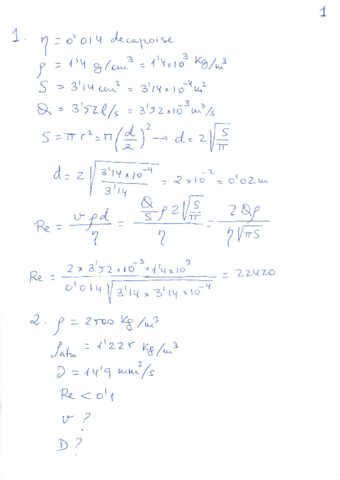 1
1. η = 0'014 decapoise
ρ = 1'4 g/cm³ = 1'4×10³ Kg/m³
S = 3'14 cm² = 3'14×10⁻⁴ m²
Q = 3'52 l/s = 3'52×10⁻³ m³/s
S = π r² = π (d/2)² → d = 2√(S/π)
d = 2√(3'14×10⁻⁴/3'14) = 2×10⁻² = 0'02 m
Re = vρd/η = (Q/S ρ 2√(S/π))/η = 2Qρ/(η√(πS))
Re = (2×3'52×10⁻³×1'4×10³)/(0'014√(3'14×3'14×10⁻⁴)) = 22420
2. ρ = 2500 Kg/m³
ρatm = 1'225 Kg/m³
ν = 14'9 mm²/s
Re < 0'1
v ?
D ?